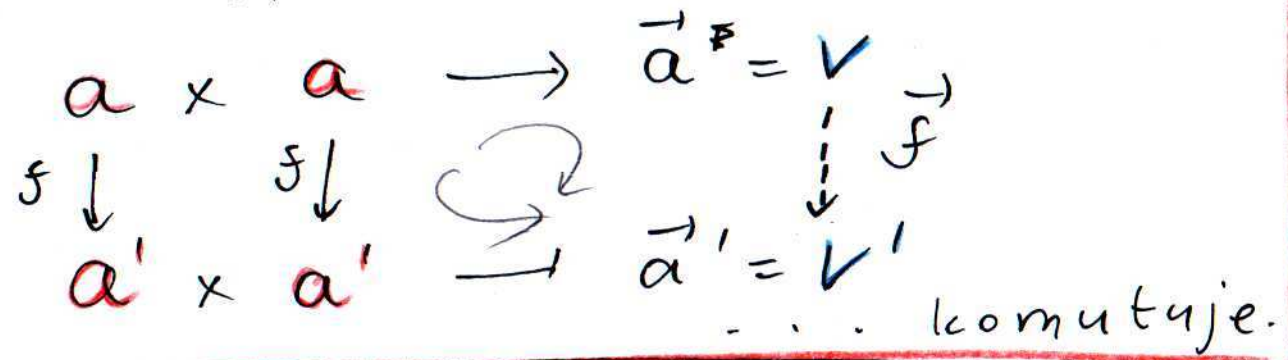 a × a → \vec{a} = V
f ↓ f ↓ \vec{f}
a' × a' → \vec{a}' = V'
. . . komutuje.